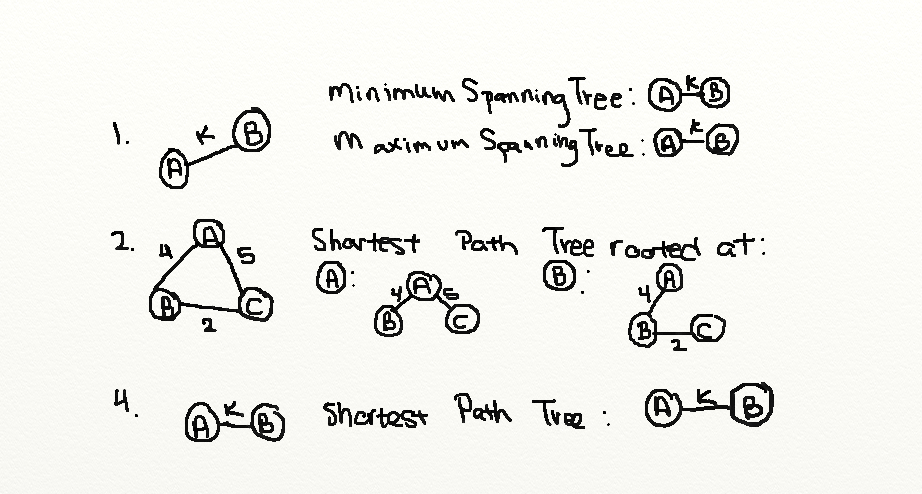 minimum Spanning Tree: A K B
1. A K B
maximum Spanning Tree: A K B
2. A 4 5 B C 2
Shortest Path Tree rooted at:
A: A 4 5 B C
B: A 4 B C 2
4. A K B Shortest Path Tree: A K B